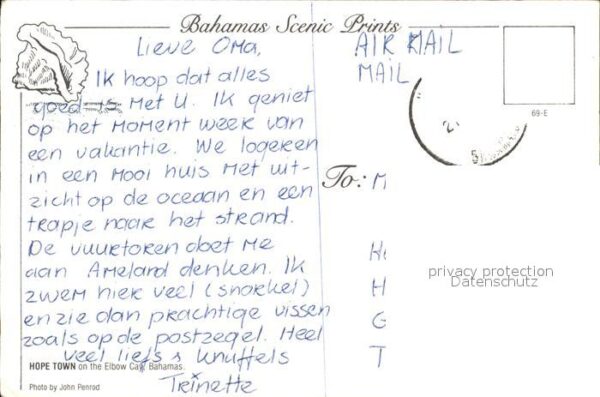 Bahamas Scenic Prints
Lieve Oma,
Ik hoop dat alles
goed is met u. Ik geniet
op het moment weer van
een vakantie. We logeren
in een mooi huis met uit-
zicht op de oceaan en een
trapje naar het strand.
De vuurtoren doet me
aan Ameland denken. Ik
zwem hier veel (snorkel)
en zie dan prachtige vissen
zoals op de postzegel. Heel
veel liefs & knuffels
Trinette
HOPE TOWN on the Elbow Cay, Bahamas.
Photo by John Penrod
AIR MAIL
MAIL
69-E
To: M
H
H
G
T
privacy protection
Datenschutz